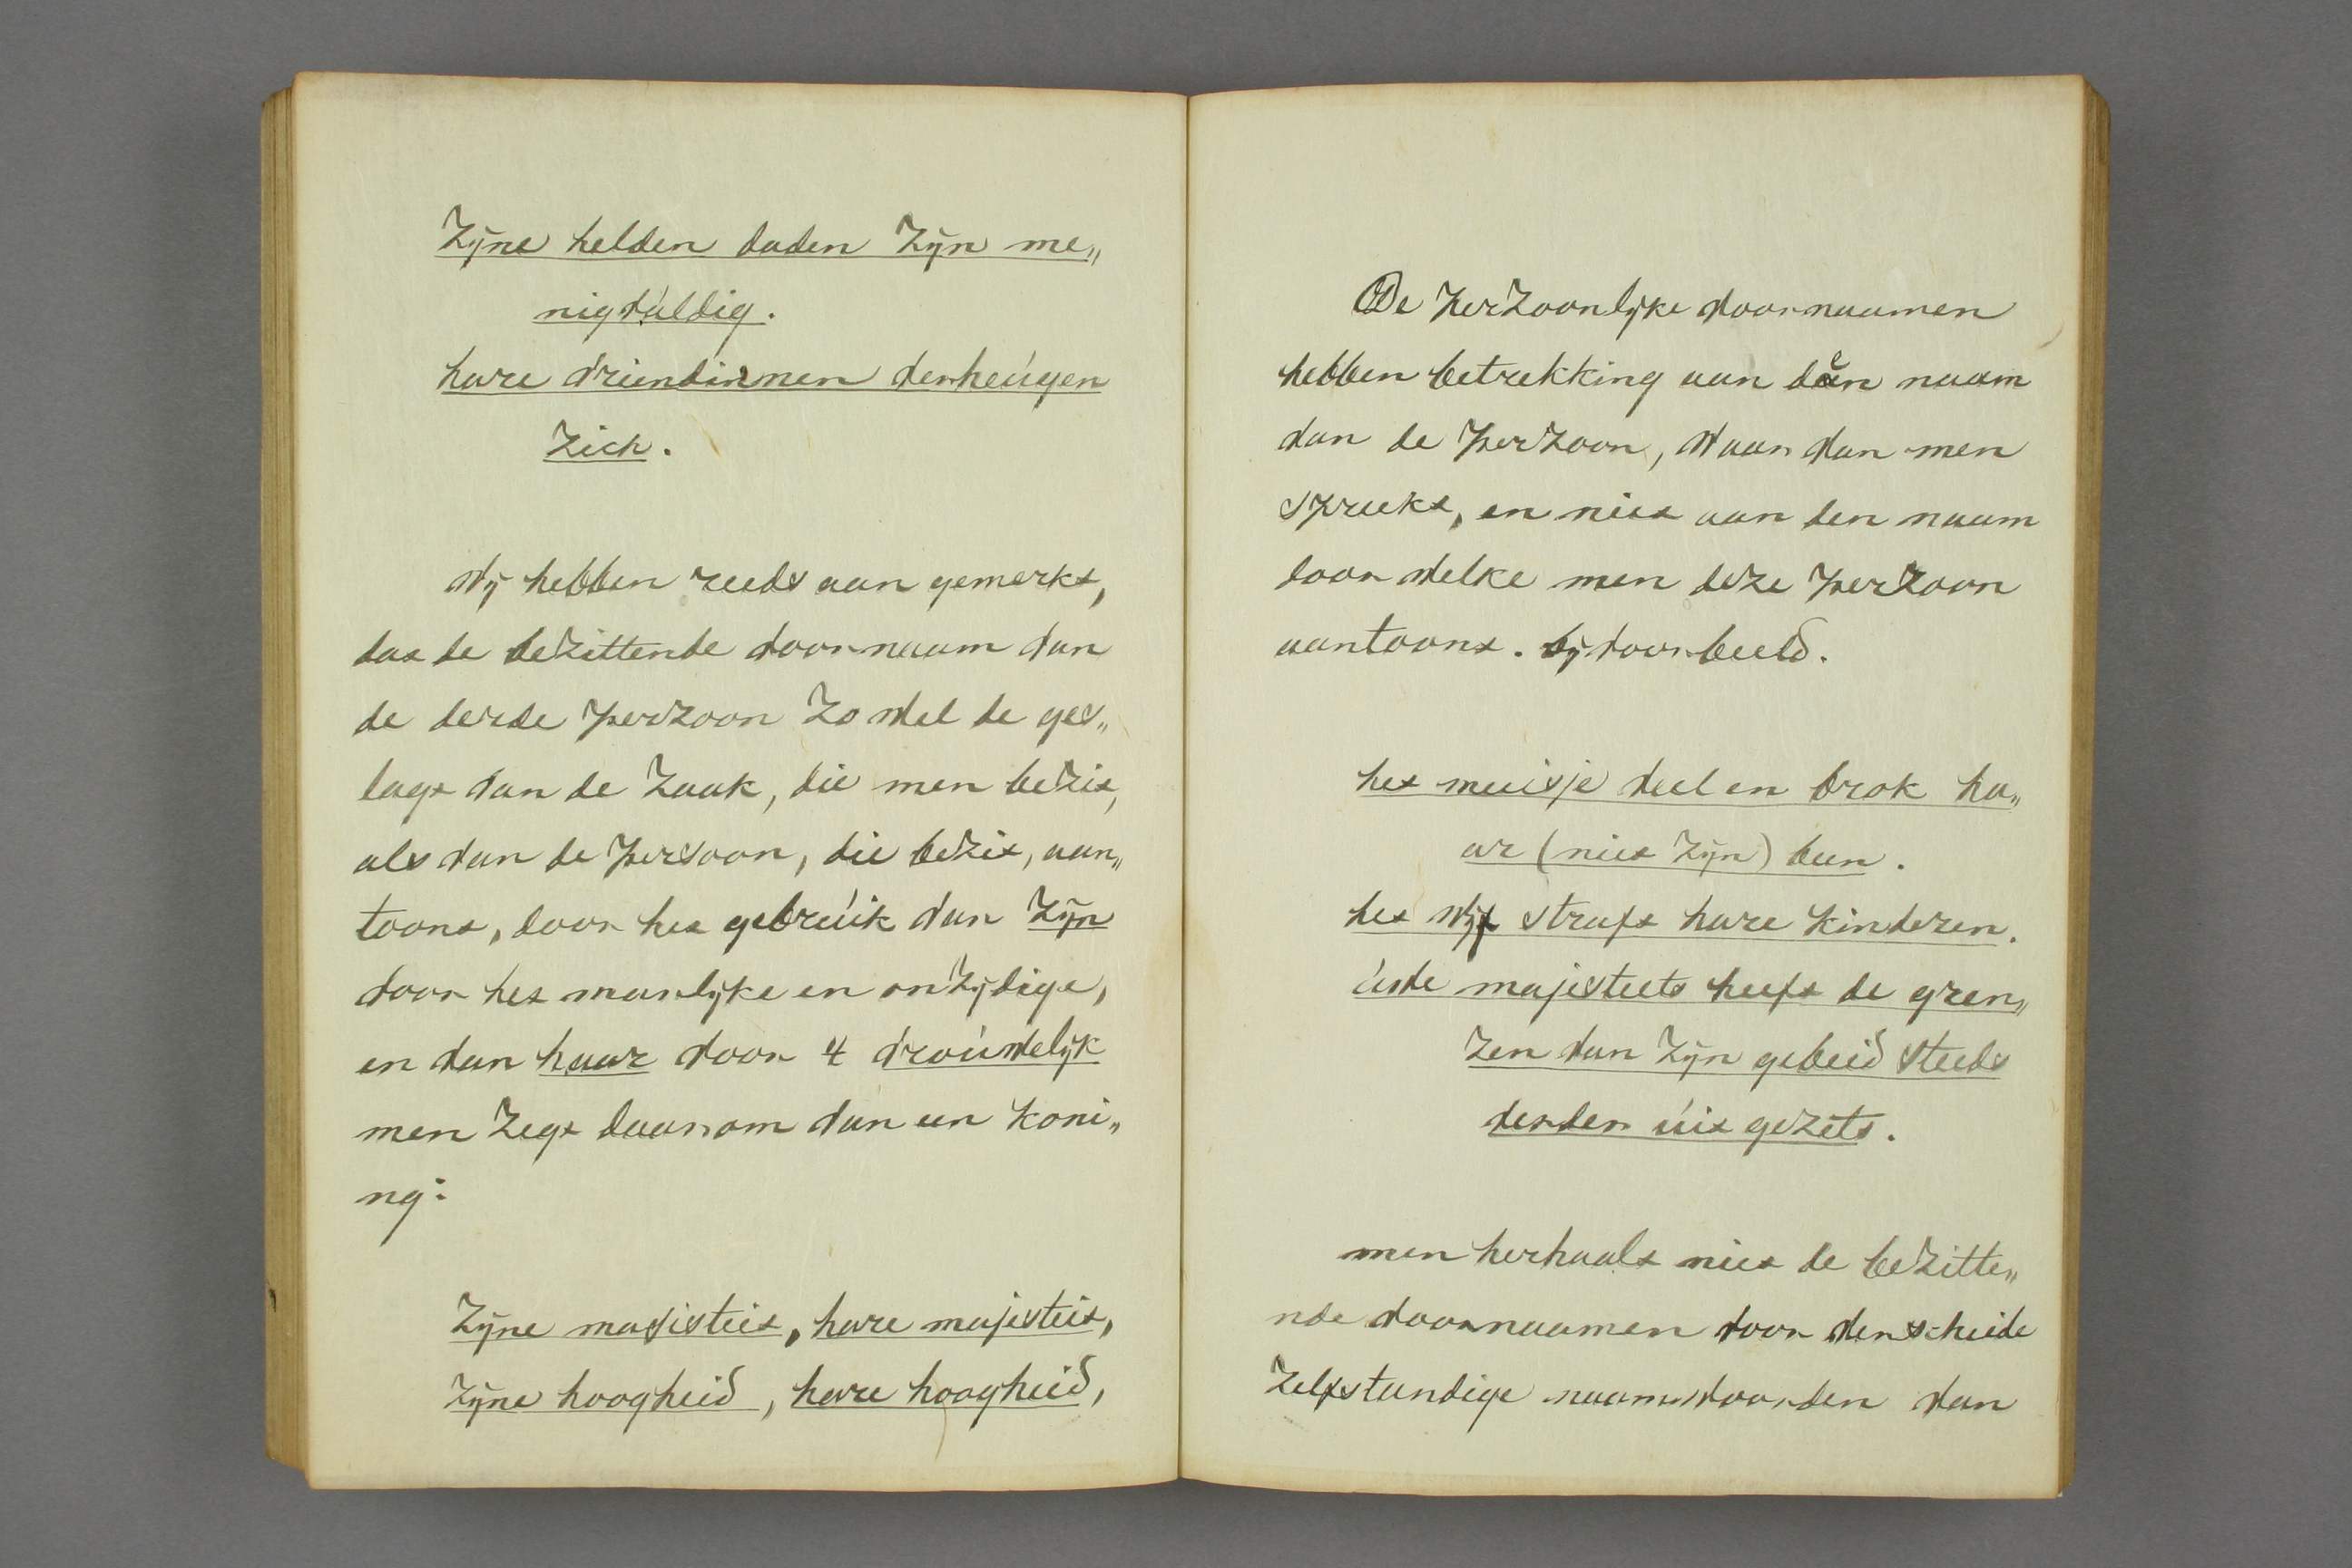 Zijne helden daden Zijn me„
nigvúldig.
hare vriendinnen verheúgen
Zich.
Wij hebben reeds aan gemerkt,
dat de bezittende voornaam van
de derde perzoon Zo wel de ges„
lagt van de Zaak, die men bezit,
als van de persoon, die bezit, aan„
toont, door het gebrúik van Zijn
voor het manlijke en onzijdige,
en van haar voor 't vroúwelijk
men Zegt daarom van een Koni„
ng:
Zijne majisteit, hare majesteit,
Zijne hoogheid, hare hoogheid,
De perzoonlijke voornaamen
hebben betrekking aan den naam
van de perzoon, waar van men
spreekt, en niet aan den naam
door welke men deze perzoon
aantoont. bij voorbeeld.
het meisje viel en brak ha„
ar (niet Zijn) been.
het wijf straft hare Kinderen.
úwe majesteets heeft de gren„
Zen van Zijn gebeid steeds
verder úit gezets.
men herhaalt niet de bezitte„
nde voornaamen voor verscheide
Zelfstandige naamwoorden van